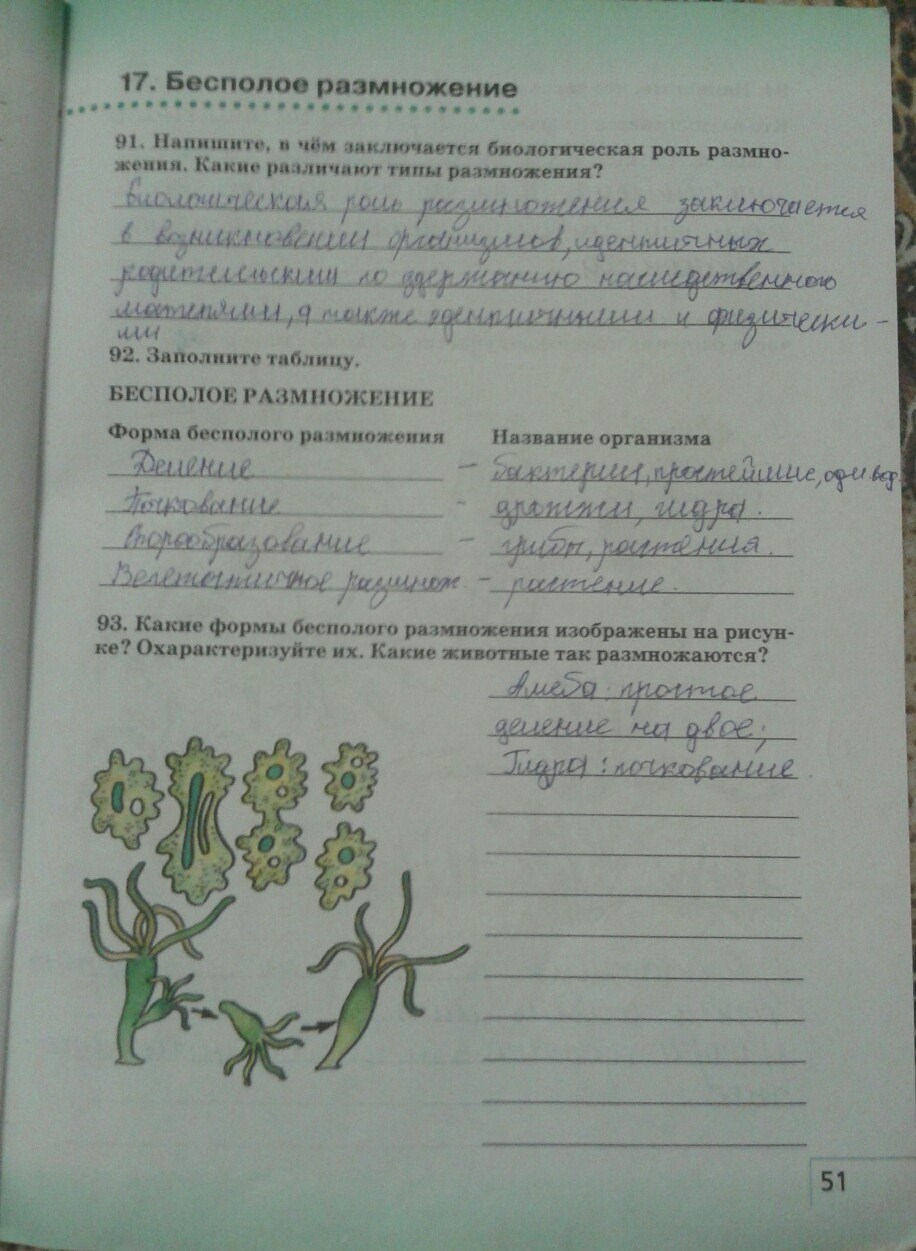 17. Бесполое размножение
91. Напишите, в чём заключается биологическая роль размно-
жения. Какие различают типы размножения?
Биологическая роль размножения заключается
в возникновении организмов, идентичных
родительским по здержанию наследственного
материала, а также идентичными и физически-
ми
92. Заполните таблицу.
БЕСПОЛОЕ РАЗМНОЖЕНИЕ
Форма бесполого размножения Название организма
Деление - бактерии, простейшие, одн вод.
Почкование - дрожжи, гидра.
Спорообразование - грибы, растения.
Вегетативное размнож. - растение.
93. Какие формы бесполого размножения изображены на рисун-
ке? Охарактеризуйте их. Какие животные так размножаются?
Амеба: простое
деление на двое;
Гидра: почкование
51